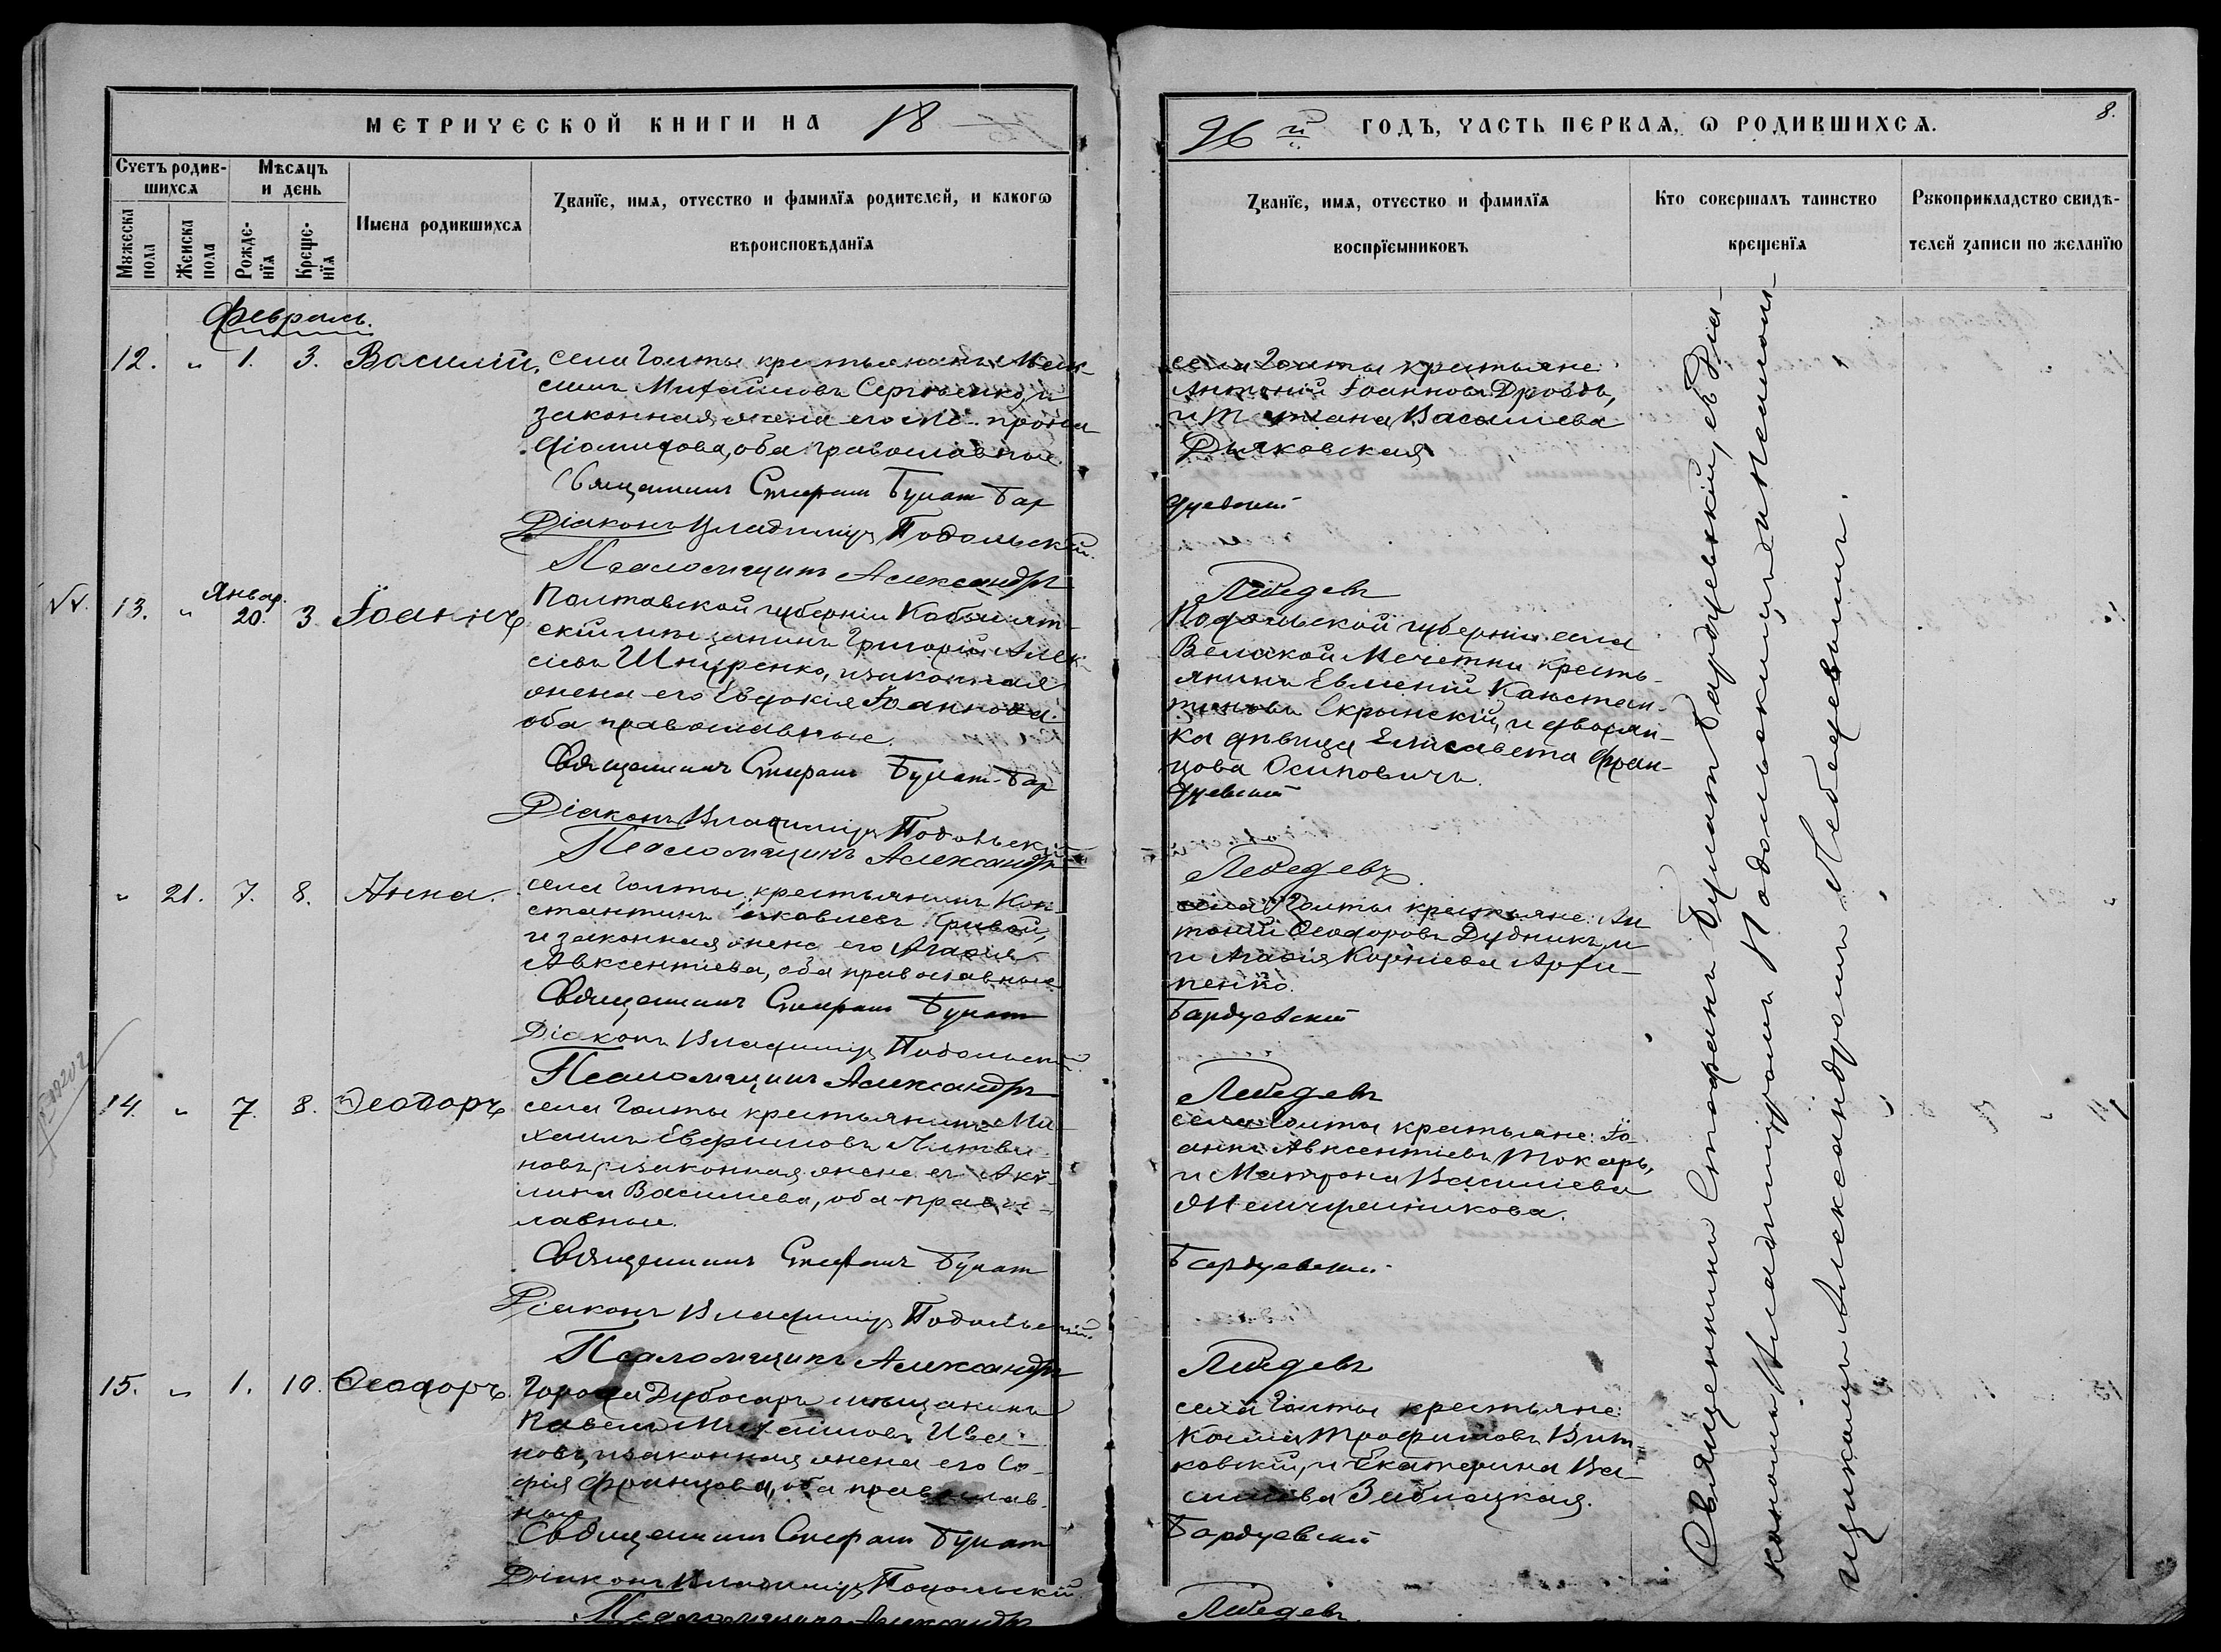 МЕТРИЧЕСКОЙ КНИГИ НА 18
96й ГОДЪ, ЧАСТЬ ПЕРВАЯ, Ѡ РОДИВШИХСЯ.
8.
Счетъ родив-
шихся
Мѣсяцъ
и день
Мꙋжеска
пола
Женска
пола
Рожде-
нїя
Креще-
нїя
Имена родившихся
Званїе, имя, отчество и фамилїя родителей, и какогѡ
вѣроисповѣданїя
Званїе, имя, отчество и фамилїя
воспрїемниковъ
Кто совершалъ таинство
крещенїя
Рꙋкоприкладство свидѣ-
телей записи по желанїю
Февраль.
12. " 1. 3. Василій.
села Голты крестьянинъ
Михайловъ Сергіенко, и
законная жена его
Діомидова, оба православные.
Священникъ Стефанъ Булат Бар
Діаконъ Владиміръ Подольскій.
Псаломщикъ Александръ
села Голты крестьяне
Антоній Іоанновъ Дроздъ,
и Татіана Васильева
Дьяковская
дуевский
Лебедевъ
13. " Январ. 20. 3 Іоаннъ
Полтавской губерніи Кобеляк-
скій мѣщанинъ Григорій Алек-
сіевъ Шнуренко, и законная
жена его Евдокія Іоаннова
оба православные.
Священникъ Стефанъ Булат-Бар
Діаконъ Владиміръ Подольскій
Псаломщикъ Александръ
Подольской губерніи села
Великой Мечетни кресть-
янинъ Евменій Констан-
тиновъ Скрынскій, и дворян-
ка дѣвица Елисавета Фран-
цова Осиповичъ.
дуевский
Лебедевъ.
" 21. 7. 8. Анна.
села Голты, крестьянинъ Кон-
стантинъ Іаковлевъ Кривой,
и законная жена его Агафія
Авксентіева, оба православные
Священникъ Стефанъ Булат
Діаконъ Владиміръ Подольскій
Псаломщикъ Александръ
села Голты крестьяне: Ан
тоній Ѳеодоровъ Дудникъ, и
и Агафія Корніева Архи-
пенко.
Бардуевский
Лебедевъ
14. " 7. 8. Ѳеодоръ
села Голты крестьянинъ Ми-
хаилъ Евфимовъ Литви-
новъ, и законная жена его Аки-
лина Васильева, оба правос-
лавные.
Священникъ Стефанъ Булат
Діаконъ Владиміръ Подольскій.
Псаломщикъ Александръ
села Голты крестьяне: Іо-
аннъ Авксентіевъ Токарь,
и Матрона Васильева
Бардуевский
Лебедевъ
15. " 1. 10. Ѳеодоръ.
Города Дубосаръ мѣщанинъ
Павелъ Михайловъ Ива-
новъ, и законная жена его Со-
фія Францова, оба православ-
ные
Священникъ Стефанъ Булат
Діаконъ Владиміръ Подольскій
Псаломщикъ Александръ
села Голты крестьяне:
Косма Трофимовъ Вит-
ковскій, и Екатерина Ва-
сильева Заблоцкая.
Бардуевский
Лебедевъ.
Священникъ Стефанъ Булатъ Бардуевскій, съ Діа-
кономъ Владиміромъ Подольскимъ и Псаломъ-
щикомъ Александромъ Лебедевымъ.